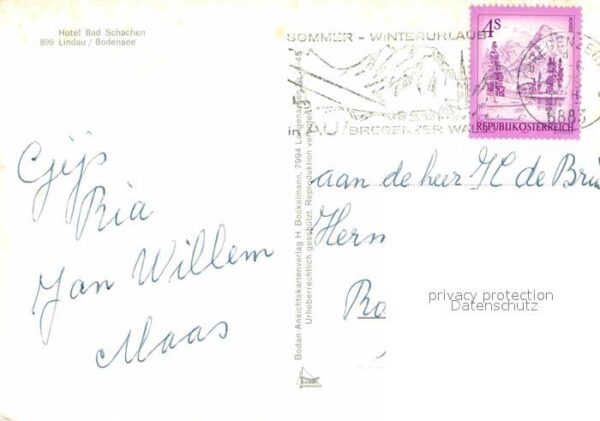 Hotel Bad Schachen
899 Lindau / Bodensee
SOMMER - WINTERURLAUB
in AU / BREGENZER WA
4S
REPUBLIK ÖSTERREICH
BREGENZERW
6883
Gijs
Ria
Jan Willem
Maas
Bodan-Ansichtskartenverlag H. Bockelmann, 7994 Langenargen
Urheberrechtlich geschützt. Reproduktion vorbehalten
aan de heer H. de Bru
Herm
Ro
privacy protection
Datenschutz